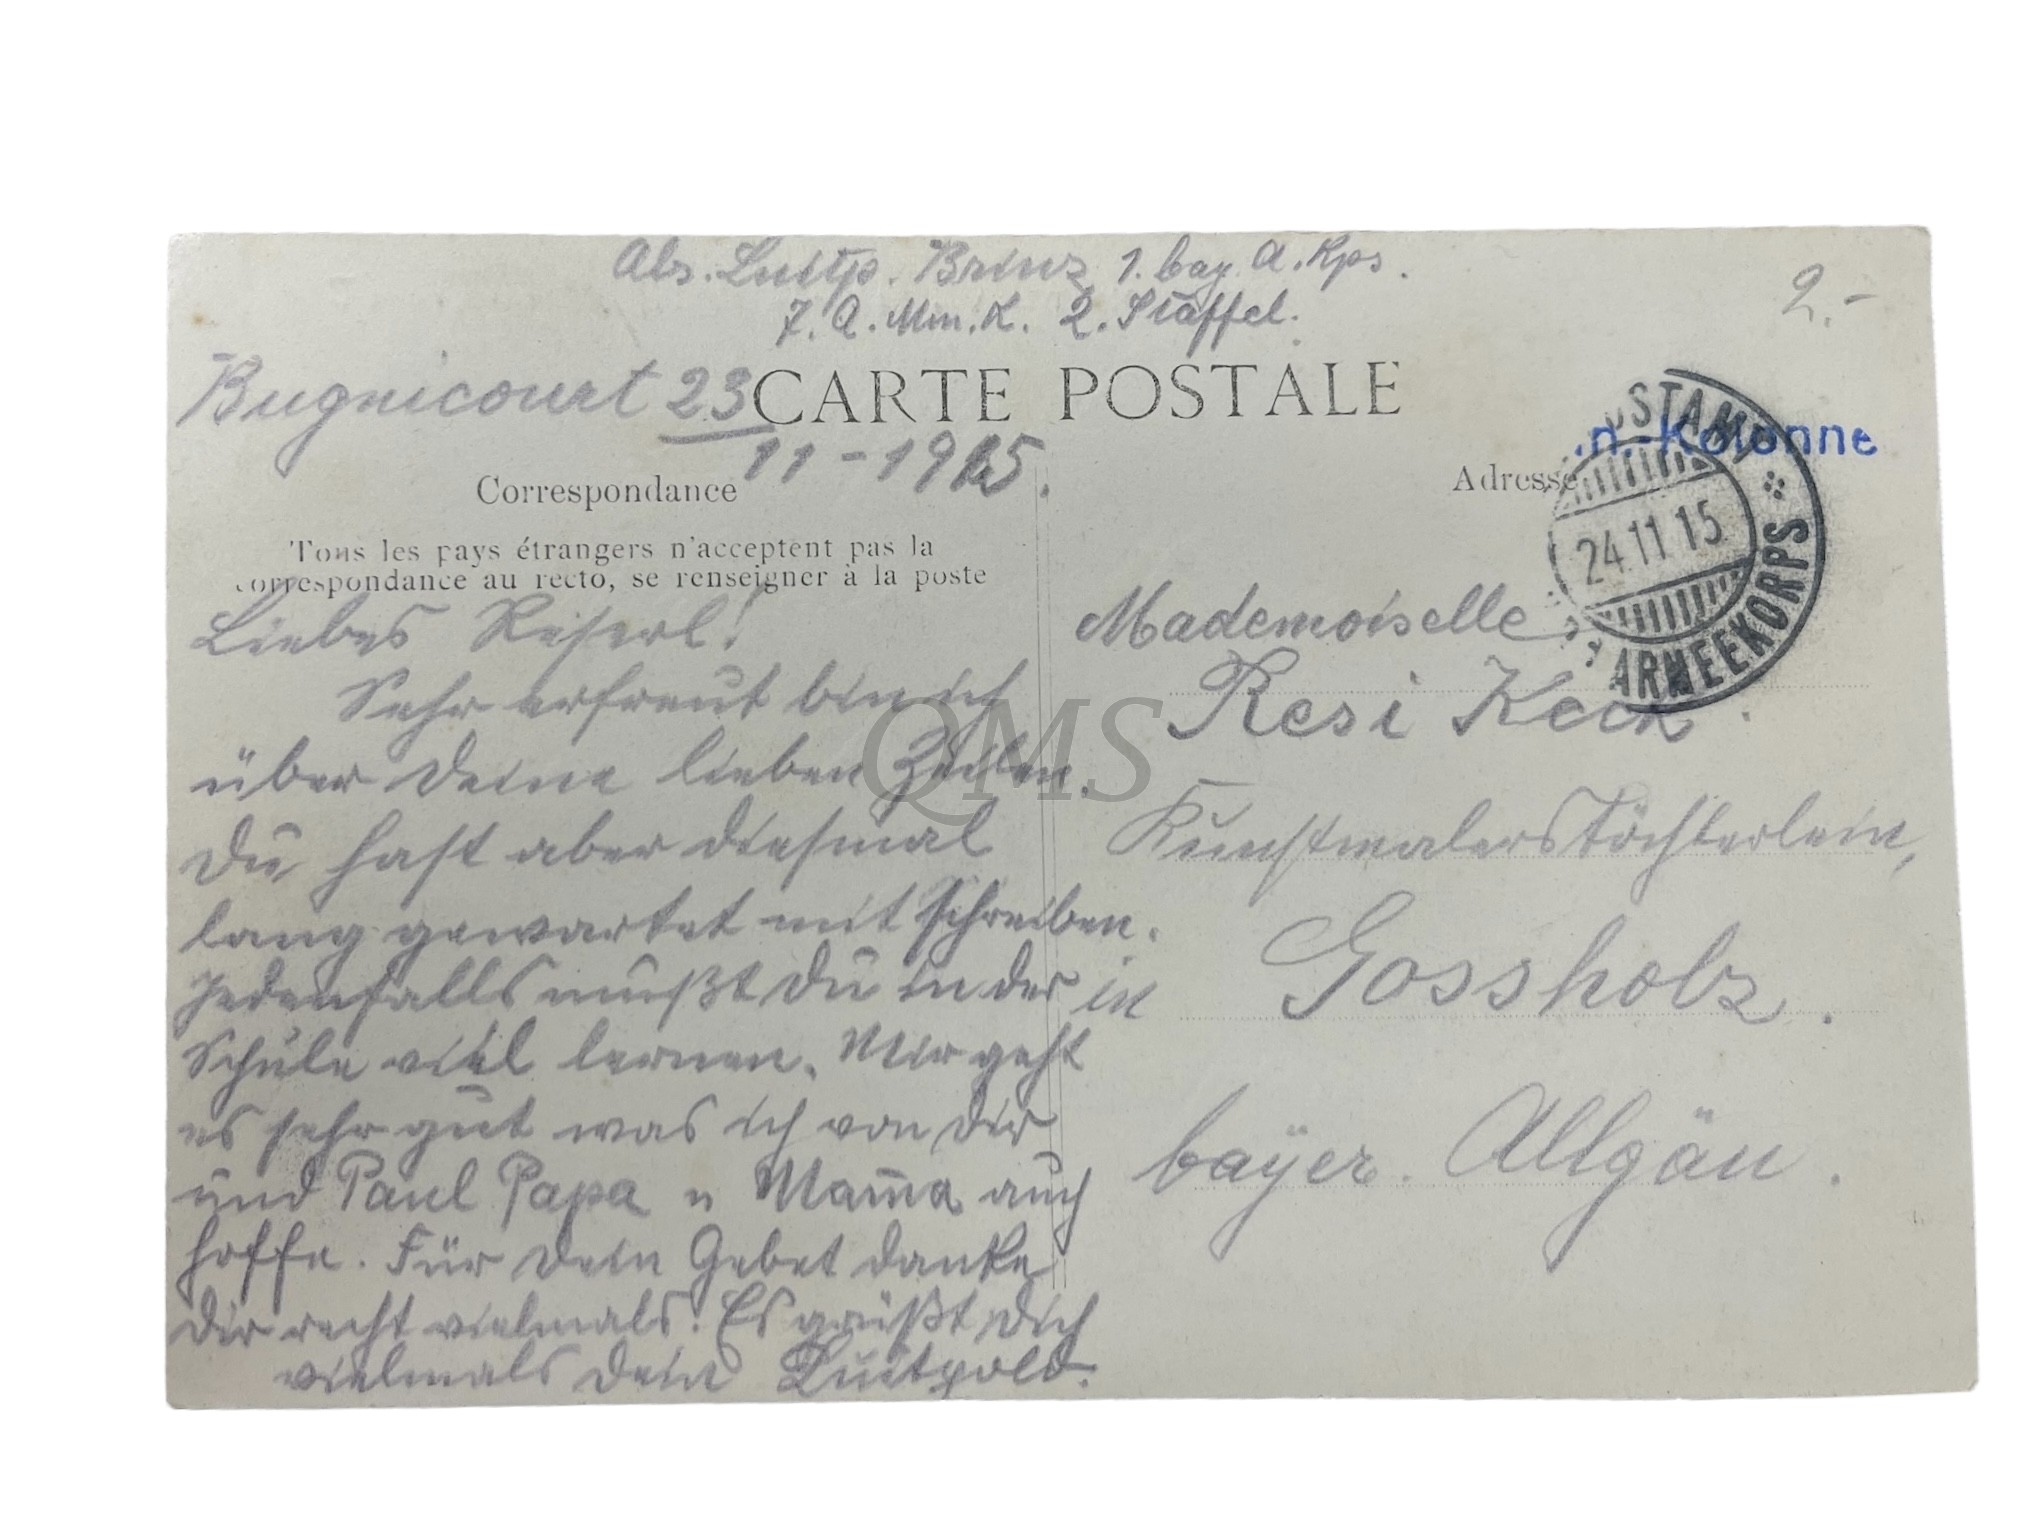 Abs. Luitp. Brinz 1. bay. A. Kps.
7. A. Mun. K. 2. Staffel.
2.-
Bugnicourt 23
11-1915.
CARTE POSTALE
n.-Kolonne
Correspondance
Adresse
Tous les pays étrangers n'acceptent pas la
correspondance au recto, se renseigner à la poste
OSTAMT
24.11.15
ARMEEKORPS
Liebes Reserl!
Sehr erfreut bin ich
über Deine lieben Zeilen.
Du hast aber diesmal
lang gewartet mit schreiben.
Jedenfalls mußt Du in der
Schule viel lernen. Mir geht
es sehr gut was ich von Dir
und Paul Papa u Mama auch
hoffe. Für Dein Gebet danke
Dir recht vielmals. Es grüßt Dich
vielmals Dein Luitpold.
Mademoiselle
Resi Keck
Kunstmalerstöchterlein,
in Gossholz.
bayer. Allgäu.
QMS